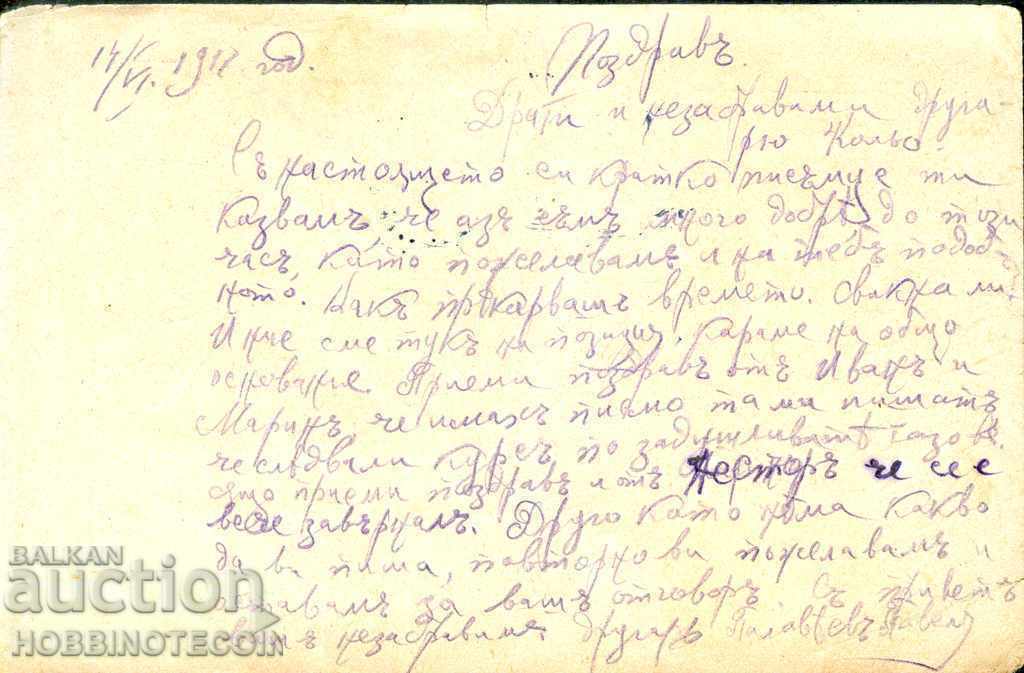 14/VI. 1917 год.
Поздравъ.
Драги и незабравими друга-
рю Кольо.
Съ настоящето си кратко писъмце ти
казвамъ, че азъ съмъ много добрѣ до този
часъ, като пожелавамъ и на тебъ подоб-
ното. Какъ прѣкарвашъ врѣмето.
Иначе сме тукъ на позиция, караме на общо
основание. Приеми поздравъ отъ Иванъ и
Маринъ, че имахъ писмо та ми пишатъ
че слѣдвали курсъ по задушливитѣ газове.
също приеми поздравъ и отъ Несторъ че се е
вече завърналъ. Друго като нѣма какво
да ви пиша, повторно ви пожелавамъ и
оставамъ за вашъ отговоръ. Съ приветъ
вашъ незабравимъ другарь Павелъ
BALKAN
auction
HOBBINOTECOIN